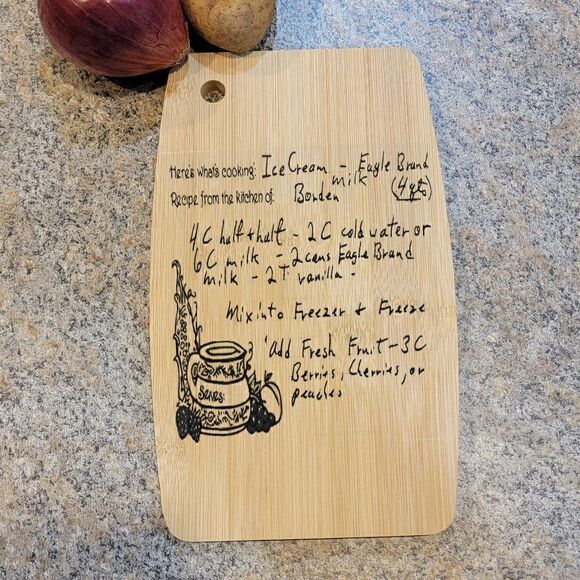 Here's what's cooking: Ice Cream - Eagle Brand
milk (4 qts)
Recipe from the kitchen of: Borden
4 C half + half - 2 C cold water or
6 C milk - 2 cans Eagle Brand
milk - 2 T vanilla -
Mix into Freezer + Freeze
'Add Fresh Fruit - 3 C
Berries, Cherries, or
peaches
Serves: